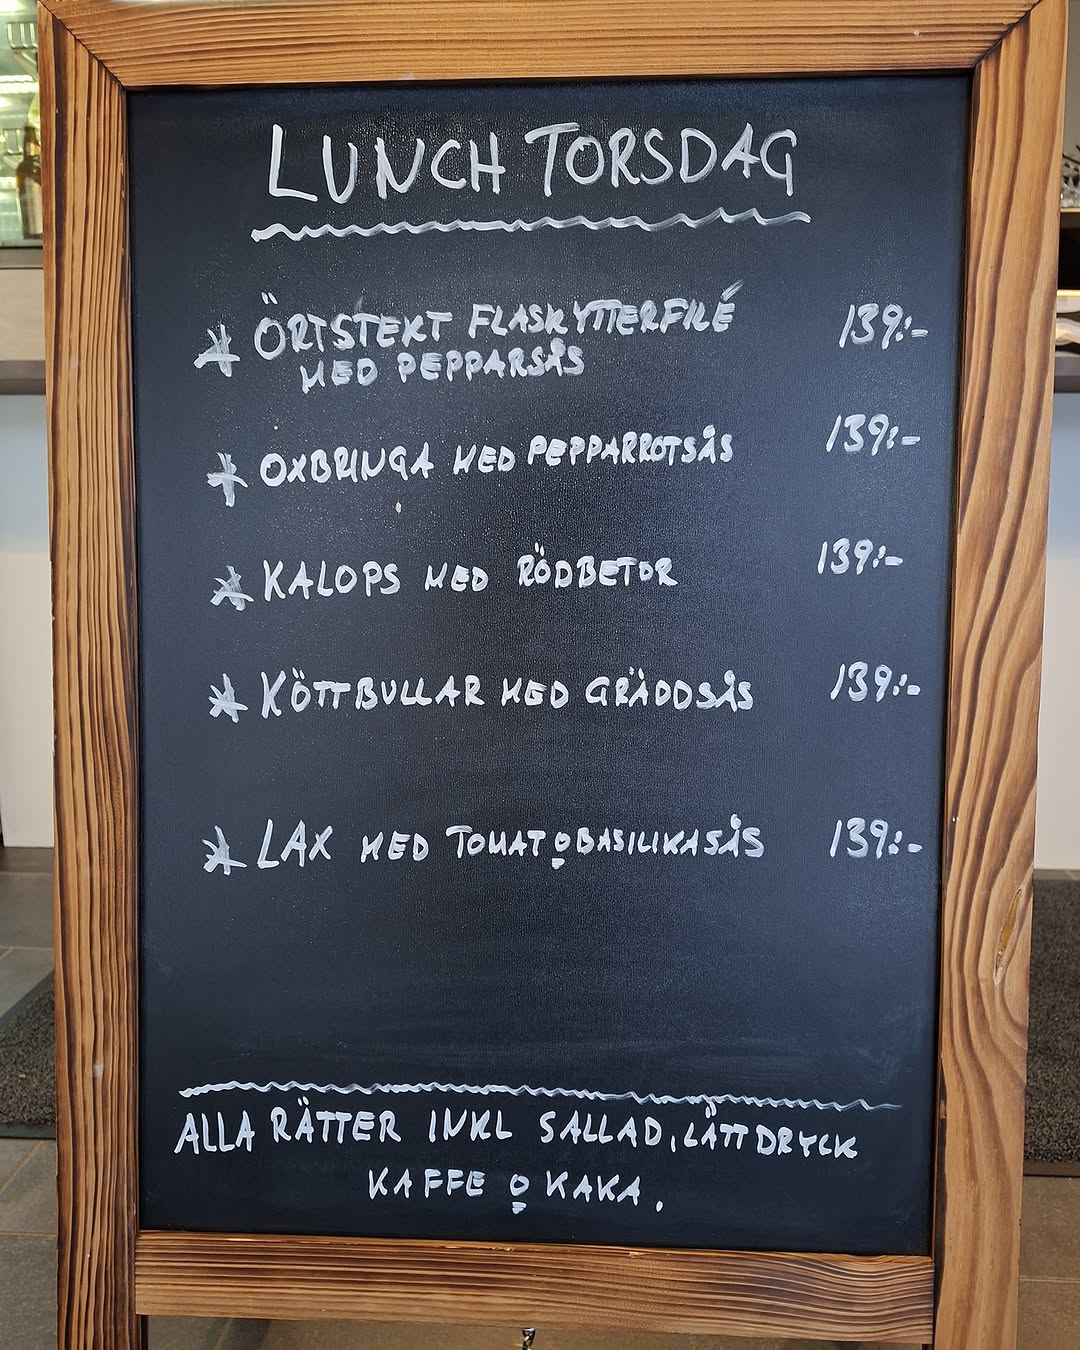 LUNCH TORSDAG
* ÖRTSTEKT FLASKYTTERFILÉ 139:-
MED PEPPARSÅS
* OXBRINGA MED PEPPARROTSÅS 139:-
* KALOPS MED RÖDBETOR 139:-
* KÖTTBULLAR MED GRÄDDSÅS 139:-
* LAX MED TOMAT O BASILIKASÅS 139:-
ALLA RÄTTER INKL SALLAD, LÄTTDRYCK
KAFFE O KAKA.